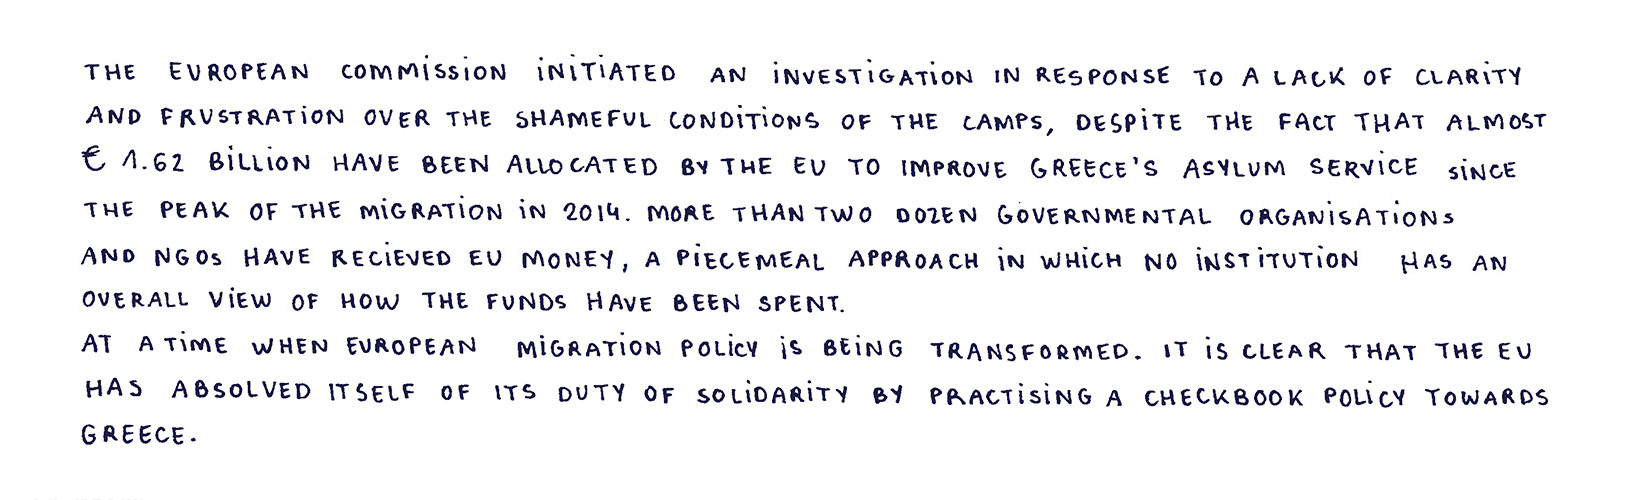 THE EUROPEAN COMMISSION INITIATED AN INVESTIGATION IN RESPONSE TO A LACK OF CLARITY
AND FRUSTRATION OVER THE SHAMEFUL CONDITIONS OF THE CAMPS, DESPITE THE FACT THAT ALMOST
€ 1.62 BILLION HAVE BEEN ALLOCATED BY THE EU TO IMPROVE GREECE'S ASYLUM SERVICE SINCE
THE PEAK OF THE MIGRATION IN 2014. MORE THAN TWO DOZEN GOVERNMENTAL ORGANISATIONS
AND NGOs HAVE RECIEVED EU MONEY, A PIECEMEAL APPROACH IN WHICH NO INSTITUTION HAS AN
OVERALL VIEW OF HOW THE FUNDS HAVE BEEN SPENT.
AT A TIME WHEN EUROPEAN MIGRATION POLICY IS BEING TRANSFORMED. IT IS CLEAR THAT THE EU
HAS ABSOLVED ITSELF OF ITS DUTY OF SOLIDARITY BY PRACTISING A CHECKBOOK POLICY TOWARDS
GREECE.